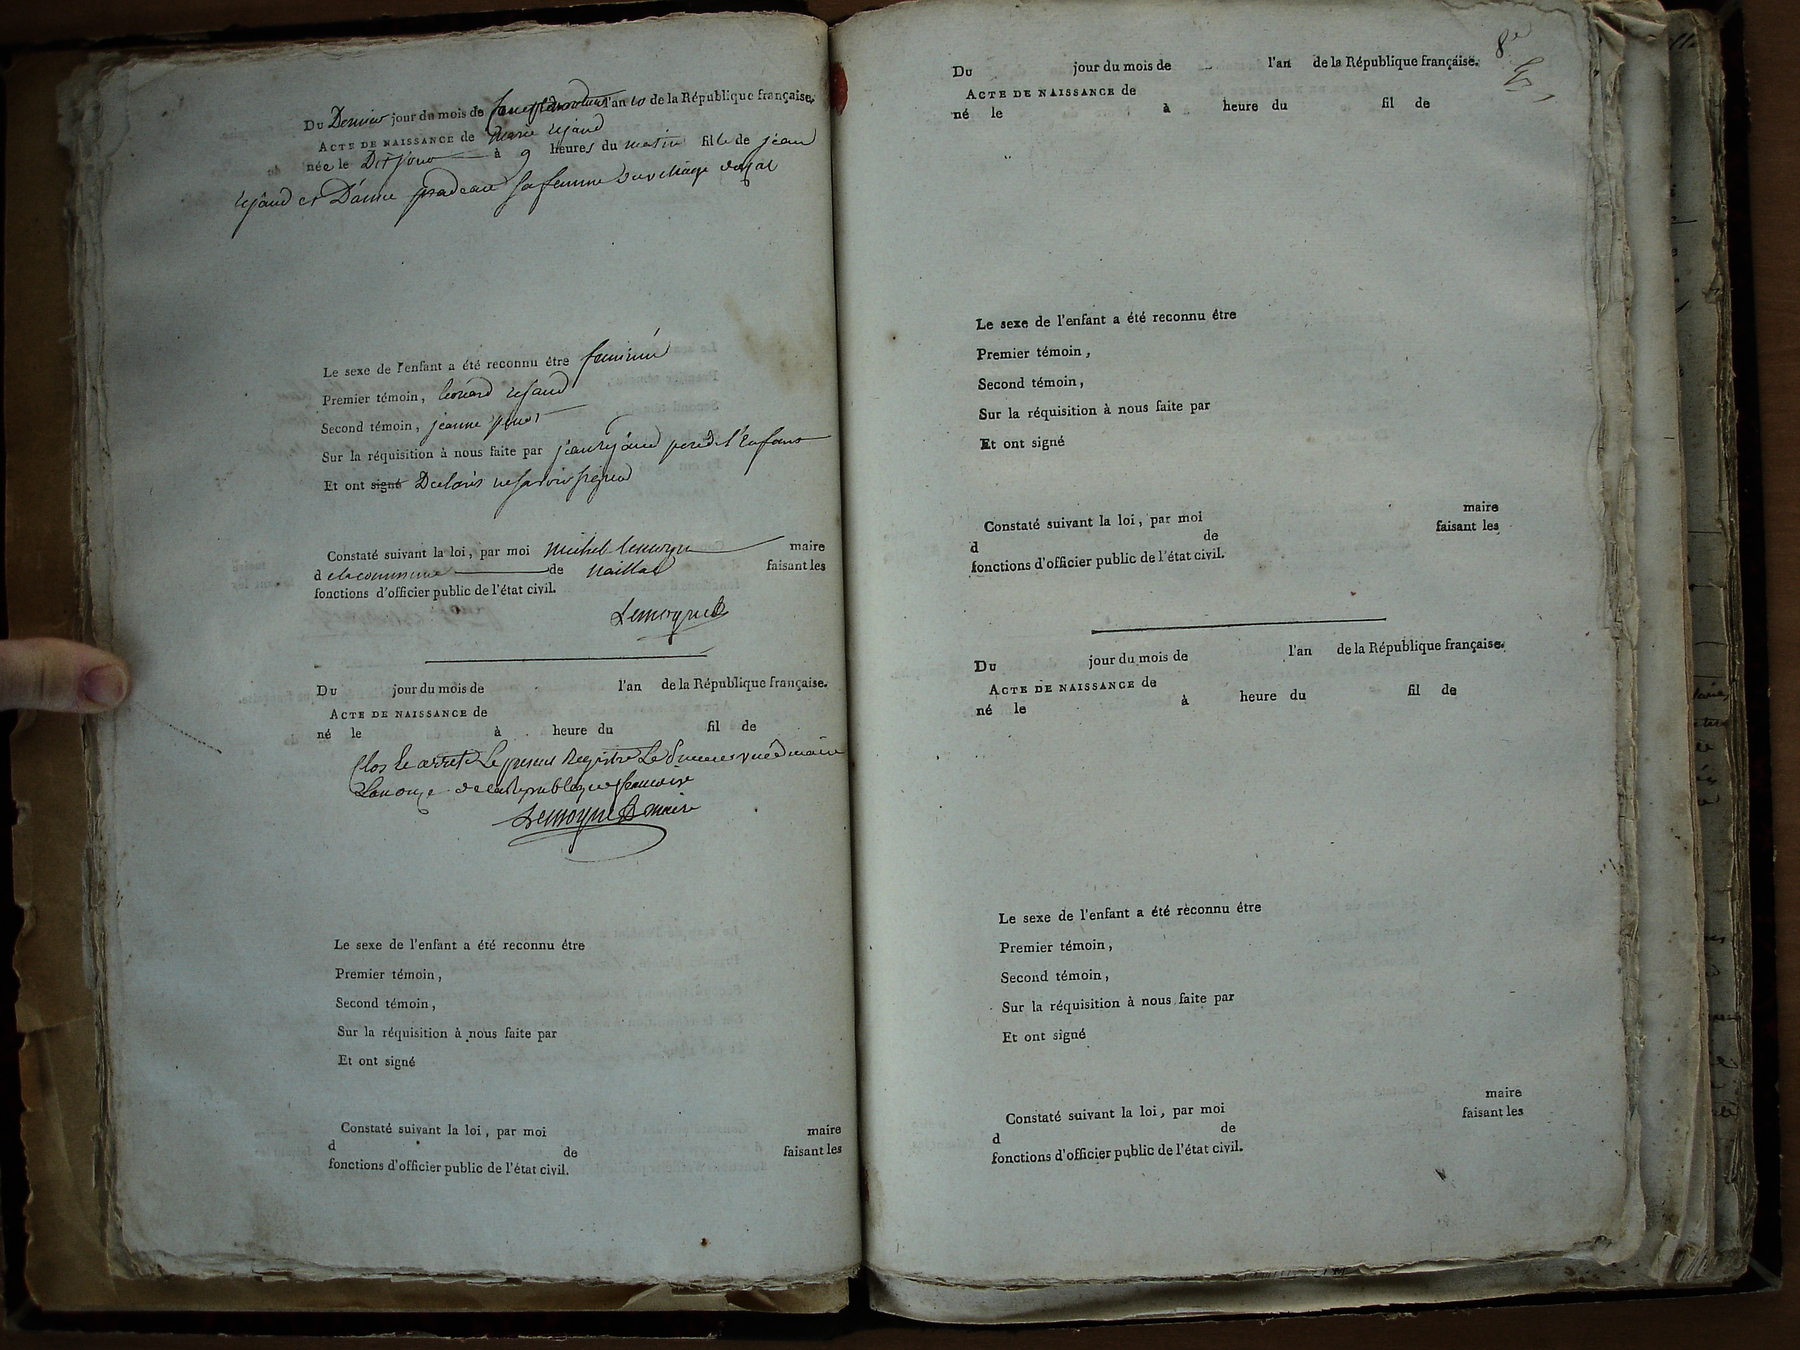 Du Dernier jour du mois de l'an 10 de la République française.
ACTE DE NAISSANCE de Marie rejaud
née le Dit jour à 9 heures du matin fille de jean
rejaud et D'anne pradeau sa femme du village
Le sexe de l'enfant a été reconnu être feminin
Premier témoin, leonard rejaud
Second témoin, jeanne
Sur la réquisition à nous faite par jean rejaud pere de l'enfant
Et ont signé Declaré ne savoir signer
Constaté suivant la loi, par moi michel lemoyne maire
d e la commune de Naillat faisant les
fonctions d'officier public de l'état civil.
Lemoyne
Du jour du mois de l'an de la République française.
ACTE DE NAISSANCE de
né le à heure du fil de
Clos et arreté Le present Registre Le premier vendemaire
L'an onze de la Republique francaise
Lemoyne maire
Le sexe de l'enfant a été reconnu être
Premier témoin,
Second témoin,
Sur la réquisition à nous faite par
Et ont signé
Constaté suivant la loi, par moi maire
d de faisant les
fonctions d'officier public de l'état civil.
8e
Du jour du mois de l'an de la République française.
ACTE DE NAISSANCE de
né le à heure du fil de
Le sexe de l'enfant a été reconnu être
Premier témoin,
Second témoin,
Sur la réquisition à nous faite par
Et ont signé
Constaté suivant la loi, par moi maire
d de faisant les
fonctions d'officier public de l'état civil.
Du jour du mois de l'an de la République française.
ACTE DE NAISSANCE de
né le à heure du fil de
Le sexe de l'enfant a été reconnu être
Premier témoin,
Second témoin,
Sur la réquisition à nous faite par
Et ont signé
Constaté suivant la loi, par moi maire
d de faisant les
fonctions d'officier public de l'état civil.